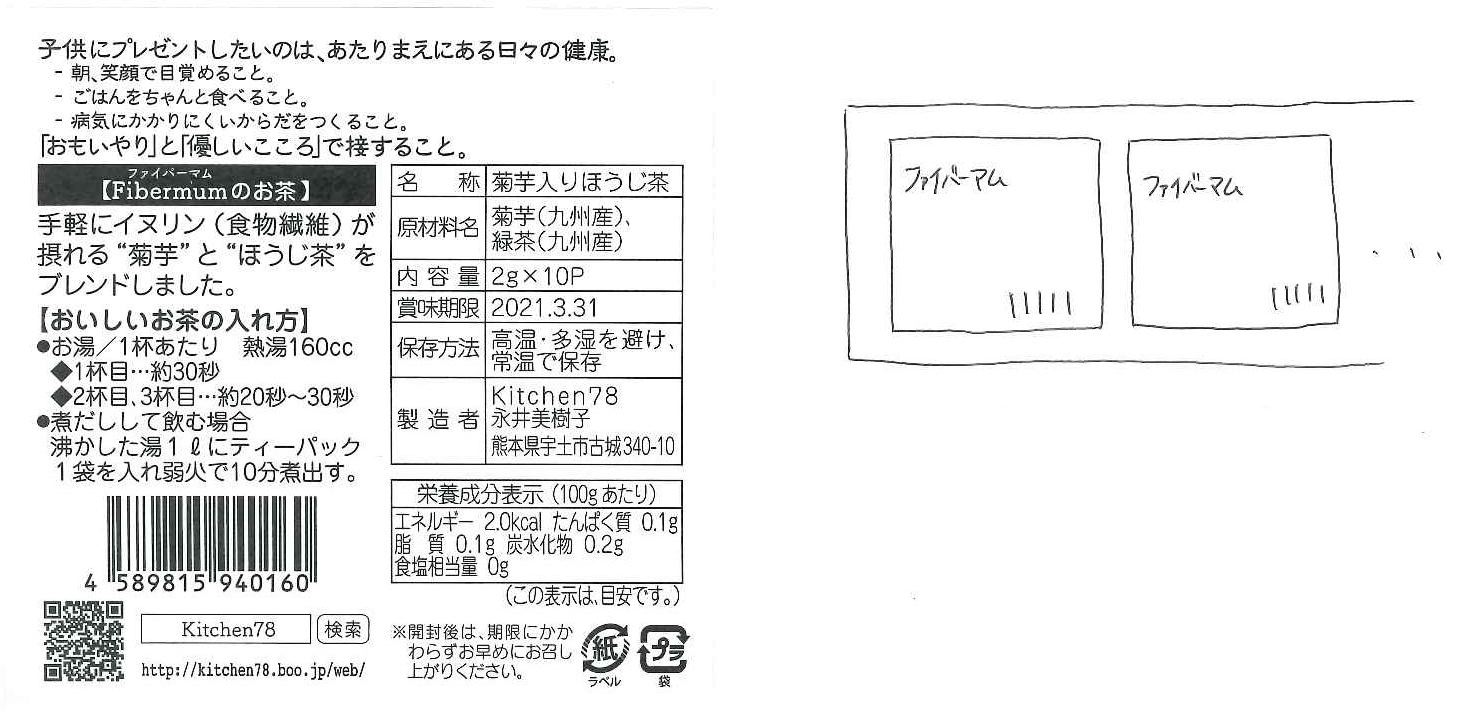 子供にプレゼントしたいのは、あたりまえにある日々の健康。
- 朝、笑顔で目覚めること。
- ごはんをちゃんと食べること。
- 病気にかかりにくいからだをつくること。
「おもいやり」と「優しいこころ」で接すること。
ファイバーマム
【Fibermumのお茶】
手軽にイヌリン（食物繊維）が
摂れる“菊芋”と“ほうじ茶”を
ブレンドしました。
【おいしいお茶の入れ方】
●お湯／1杯あたり　熱湯160cc
◆1杯目…約30秒
◆2杯目、3杯目…約20秒～30秒
●煮だしして飲む場合
沸かした湯1ℓにティーパック
1袋を入れ弱火で10分煮出す。
4 589815 940160
Kitchen78 検索
http://kitchen78.boo.jp/web/
名　称 菊芋入りほうじ茶
原材料名 菊芋（九州産）、
緑茶（九州産）
内容量 2g×10P
賞味期限 2021.3.31
保存方法 高温・多湿を避け、
常温で保存
製造者 Kitchen78
永井美樹子
熊本県宇土市古城340-10
栄養成分表示（100gあたり）
エネルギー 2.0kcal たんぱく質 0.1g
脂　質 0.1g 炭水化物 0.2g
食塩相当量 0g
（この表示は、目安です。）
※開封後は、期限にかか
わらずお早めにお召し
上がりください。
紙
ラベル
プラ
袋
ファイバーマム
ファイバーマム